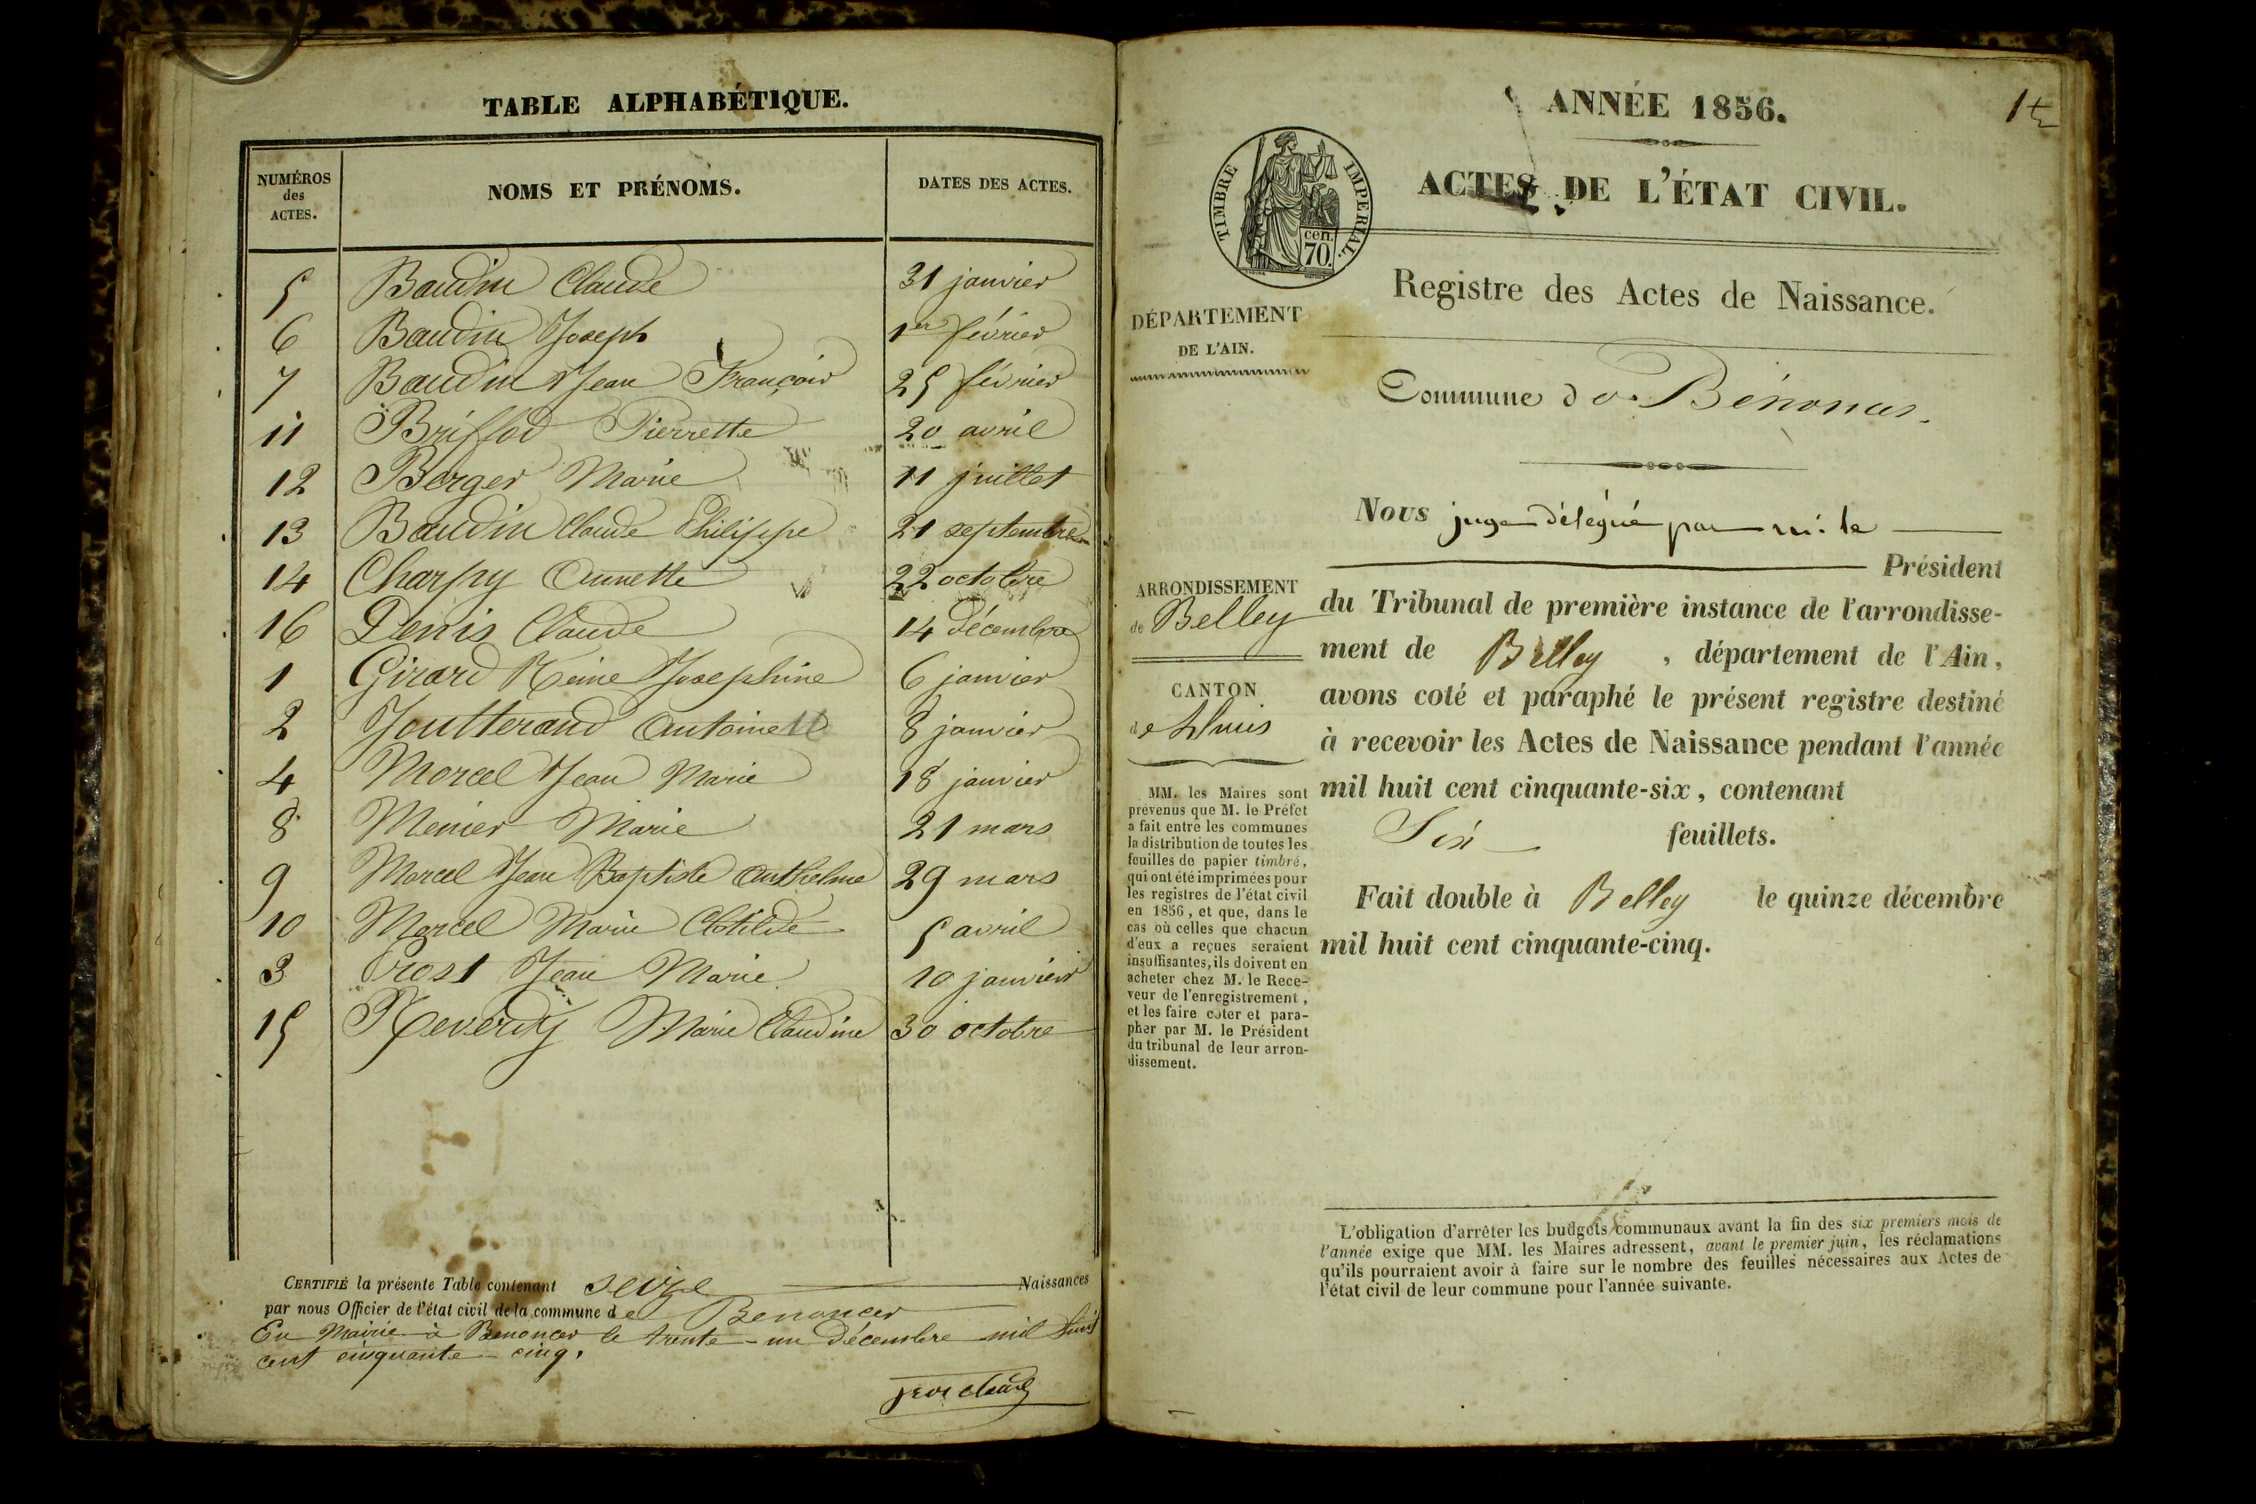 TABLE ALPHABÉTIQUE.
NUMÉROS des ACTES. NOMS ET PRÉNOMS. DATES DES ACTES.
5 Baudin Claude 31 janvier
6 Baudin Joseph 1er février
7 Baudin Jean François 25 février
11 Briffod Pierrette 20 avril
12 Berger Marie 11 juillet
13 Baudin Claude Philippe 21 septembre
14 Charpy Annette 22 octobre
16 Denis Claude 14 décembre
1 Girard Reine Josephine 6 janvier
2 Joutterand Antoinette 8 janvier
4 Morcel Jean Marie 18 janvier
8 Menier Marie 21 mars
9 Morcel Jean Baptiste Anthelme 29 mars
10 Morcel Marie Clotilde 5 avril
3 Prost Jean Marie 10 janvier
15 Reverdy Marie Claudine 30 octobre
CERTIFIÉ la présente Table contenant seize Naissances
par nous Officier de l'état civil de la commune de Benonces
En Mairie à Benonces le trente-un décembre mil huit
cent cinquante-cinq.
ANNÉE 1856.
1er
ACTES DE L'ÉTAT CIVIL.
TIMBRE IMPERIAL.
cen. 70.
Registre des Actes de Naissance.
DÉPARTEMENT
DE L'AIN.
Commune de Bénonces.
Nous juge délégué par m. le
Président
ARRONDISSEMENT
de Belley
du Tribunal de première instance de l'arrondisse-
ment de Belley, département de l'Ain,
avons coté et paraphé le présent registre destiné
à recevoir les Actes de Naissance pendant l'année
mil huit cent cinquante-six, contenant
Six feuillets.
Fait double à Belley le quinze décembre
mil huit cent cinquante-cinq.
CANTON
de Lhuis
MM. les Maires sont
prévenus que M. le Préfet
a fait entre les communes
la distribution de toutes les
feuilles de papier timbré,
qui ont été imprimées pour
les registres de l'état civil
en 1856, et que, dans le
cas où celles que chacun
d'eux a reçues seraient
insuffisantes, ils doivent en
acheter chez M. le Rece-
veur de l'enregistrement,
et les faire coter et para-
pher par M. le Président
du tribunal de leur arron-
dissement.
L'obligation d'arrêter les budgets communaux avant la fin des six premiers mois de
l'année exige que MM. les Maires adressent, avant le premier juin, les réclamations
qu'ils pourraient avoir à faire sur le nombre des feuilles nécessaires aux Actes de
l'état civil de leur commune pour l'année suivante.